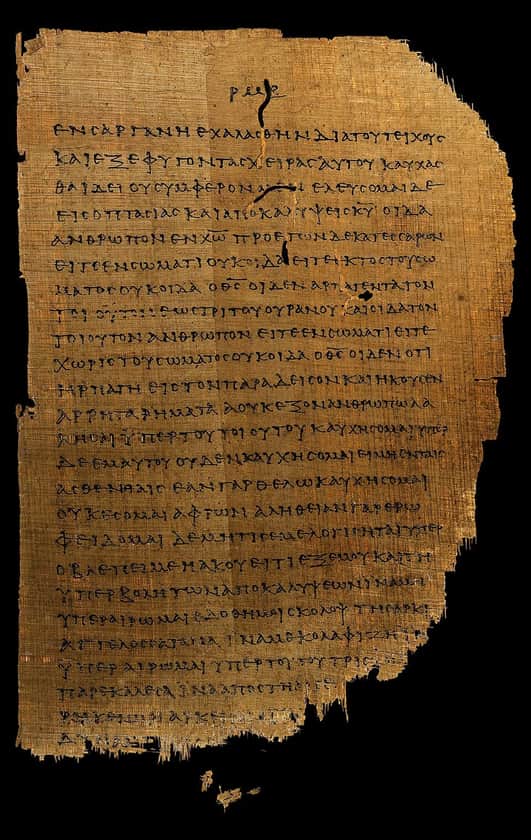 ΕΝϹΑΡΓΑΝΗΕΧΑΛΑϹΘΗΝΔΙΑΤΟΥΤΕΙΧΟΥϹ
ΚΑΙΕΞΕΦΥΓΟΝΤΑϹΧΕΙΡΑϹΑΥΤΟΥΚΑΥΧΑϹ
ΘΑΙΔΕΙΟΥϹΥΜΦΕΡΟΝ ΕΛΕΥϹΟΜΑΙΔΕ
ΕΙϹΟΠΤΑϹΙΑϹΚΑΙΑΠΟΚΑΛΥΨΕΙϹΚΥ̅ΟΙΔΑ
ΑΝΘΡΩΠΟΝΕΝΧΩ̅ΠΡΟΕΤΩΝΔΕΚΑΤΕϹϹΑΡΩΝ
ΕΙΤΕΕΝϹΩΜΑΤΙΟΥΚΟΙΔΑΕΙΤΕΕΚΤΟϹΤΟΥϹΩ
ΜΑΤΟϹΟΥΚΟΙΔΑΟΘϹ̅ΟΙΔΕΝΑΡΠΑΓΕΝΤΑΤΟΝ
ΕΩϹΤΡΙΤΟΥΟΥΡΑΝΟΥΚΑΙΟΙΔΑΤΟΝ
ΤΟΙΟΥΤΟΝΑΝΘΡΩΠΟΝΕΙΤΕΕΝϹΩΜΑΤΙΕΙΤΕ
ΧΩΡΙϹΤΟΥϹΩΜΑΤΟϹΟΥΚΟΙΔΑΟΘϹ̅ΟΙΔΕΝΟΤΙ
ΗΡΠΑΓΗΕΙϹΤΟΝΠΑΡΑΔΕΙϹΟΝΚΑΙΗΚΟΥϹΕΝ
ΑΡΡΗΤΑΡΗΜΑΤΑΑΟΥΚΕΞΟΝΑΝΘΡΩΠΩΛΑ
ΛΗϹΑΙΫΠΕΡΤΟΥΤΟΙΟΥΤΟΥΚΑΥΧΗϹΟΜΑΙΥΠΕΡ
ΔΕΕΜΑΥΤΟΥΟΥΔΕΝΚΑΥΧΗϹΟΜΑΙΕΙΜΗΕΝΤΑΙϹ
ΑϹΘΕΝΕΙΑΙϹΕΑΝΓΑΡΘΕΛΩΚΑΥΧΗϹΟΜΑΙ
ΟΥΚΕϹΟΜΑΙΑΦΡΩΝΑΛΗΘΕΙΑΝΓΑΡΕΡΩ
ΦΕΙΔΟΜΑΙΔΕΜΗΤΙϹΕΜΕΛΟΓΙϹΗΤΑΙΥΠΕΡ
ΟΒΛΕΠΕΙΜΕΗΑΚΟΥΕΙΤΙΕΞΕΜΟΥΚΑΙΤΗ
ΫΠΕΡΒΟΛΗΤΩΝΑΠΟΚΑΛΥΨΕΩΝΙΝΑΜΗ
ΥΠΕΡΑΙΡΩΜΑΙΕΔΟΘΗΜΟΙϹΚΟΛΟΨΤΗϹΑΡΚΙ
ΑΓΓΕΛΟϹϹΑΤΑΝΑΙΝΑΜΕΚΟΛΑΦΙΖΗΙ
ΫΠΕΡΑΙΡΩΜΑΙΥΠΕΡΤΟΥΤΟΥΤΡΙϹ
ΠΑΡΕΚΑΛΕϹΑΪΝΑΑΠΟϹΤΗ